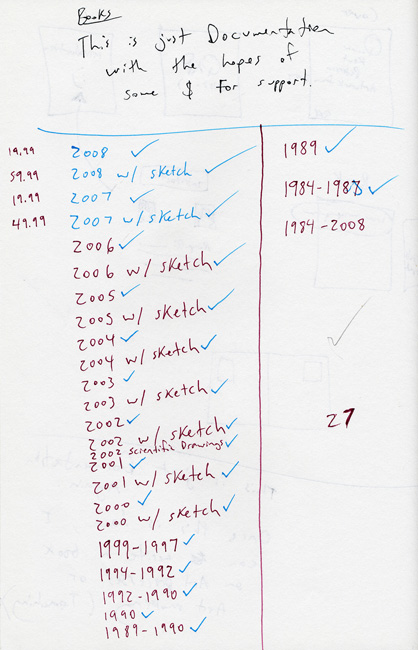 Books
This is just Documentation
with the hopes of
some $ for support.
19.99 2008 ✓
59.99 2008 w/ sketch ✓
19.99 2007 ✓
49.99 2007 w/ sketch ✓
2006 ✓
2006 w/ sketch ✓
2005 ✓
2005 w/ sketch ✓
2004 ✓
2004 w/ sketch ✓
2003 ✓
2003 w/ sketch ✓
2002 ✓
2002 w/ sketch ✓
2002 Scientific Drawings ✓
2001 ✓
2001 w/ sketch ✓
2000 ✓
2000 w/ sketch ✓
1999-1997 ✓
1994-1992 ✓
1992-1990 ✓
1990 ✓
1989-1990 ✓
1989 ✓
1984-1988 ✓
1984-2008
27